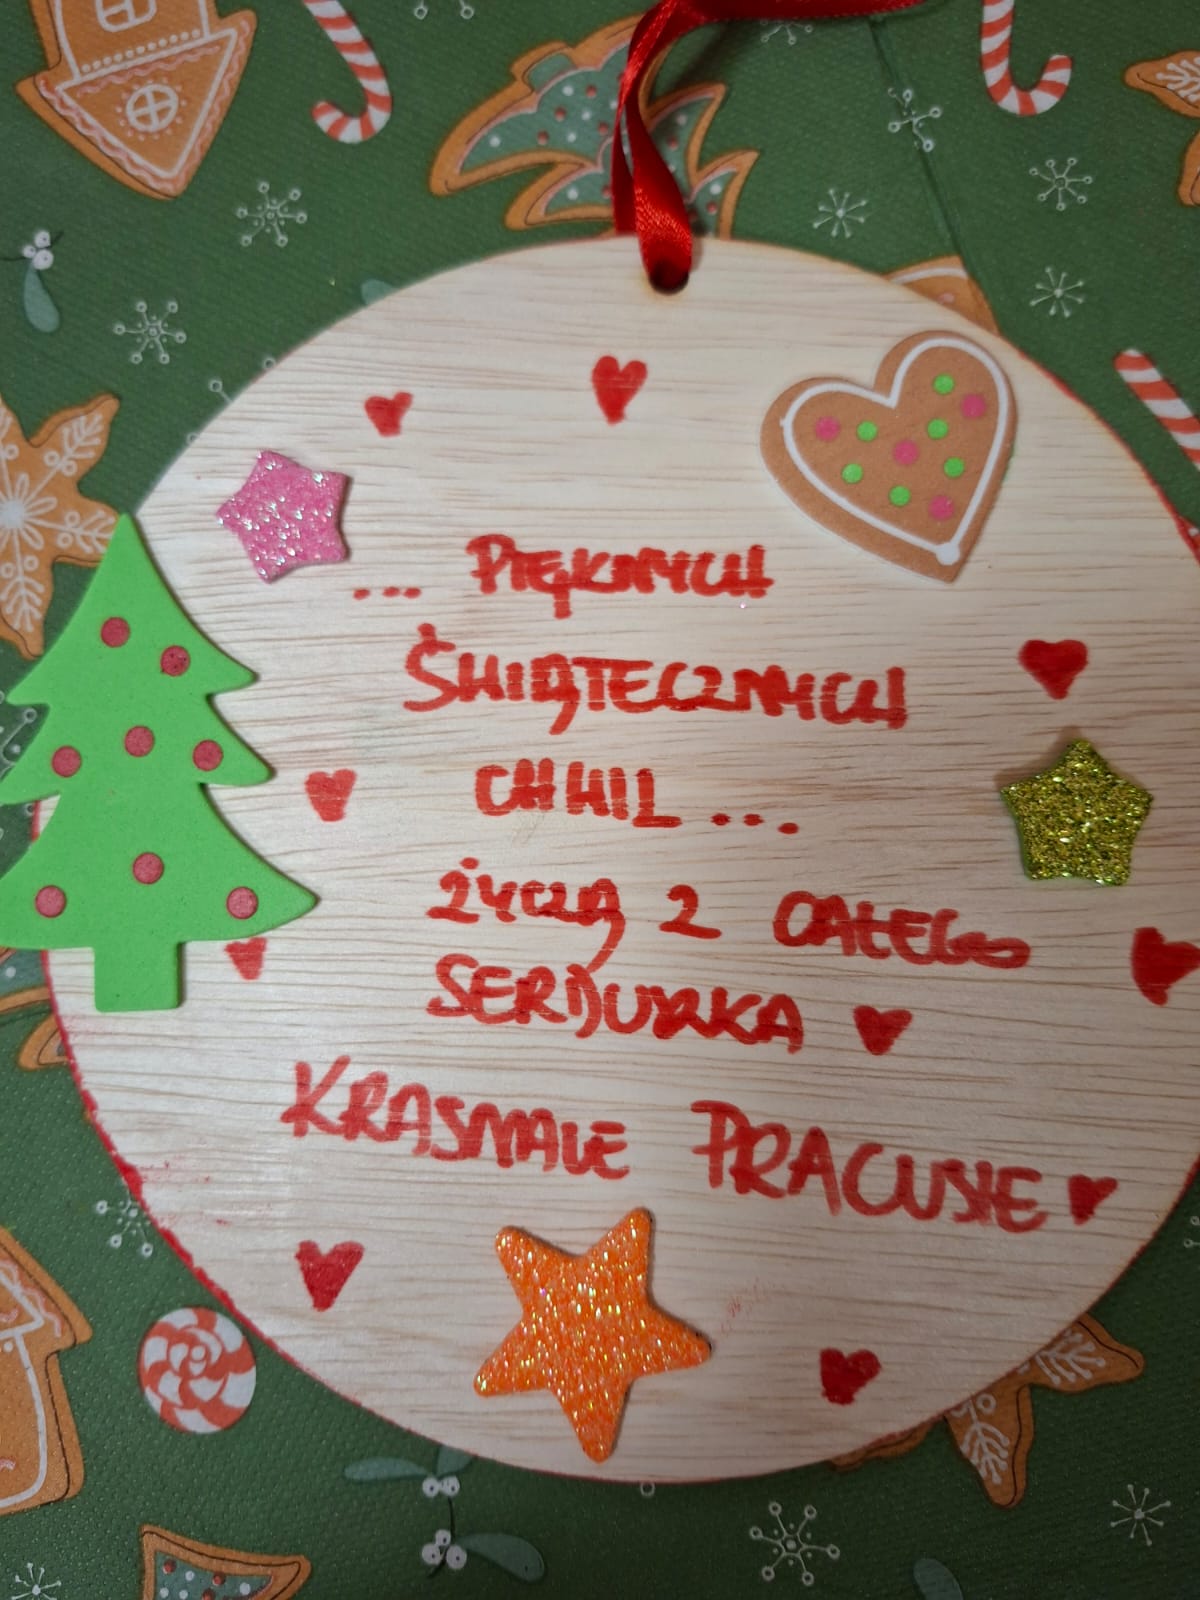 ... PIĘKNYCH
ŚWIĄTECZNYCH
CHWIL...
ŻYCZĄ Z CAŁEGO
SERDUSZKA
KRASNALE PRACUSIE